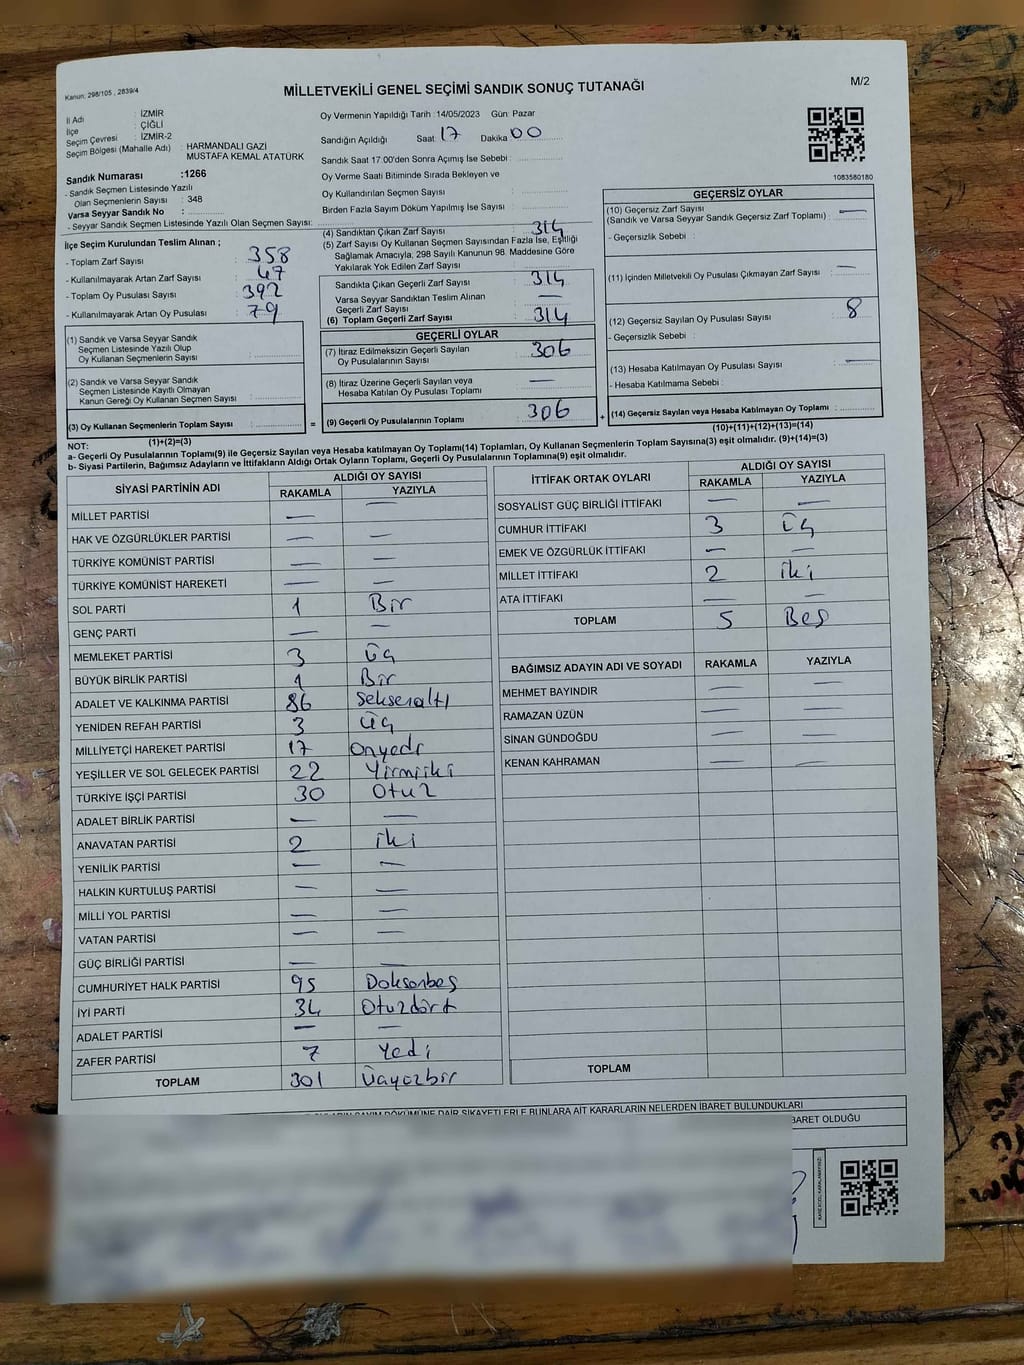 Kanun: 298/105 , 2839/4
MİLLETVEKİLİ GENEL SEÇİMİ SANDIK SONUÇ TUTANAĞI
M/2
İl Adı : İZMİR
İlçe : ÇİĞLİ
Seçim Çevresi : İZMİR-2
Seçim Bölgesi (Mahalle Adı) : HARMANDALI GAZİ
MUSTAFA KEMAL ATATÜRK
Sandık Numarası :1266
- Sandık Seçmen Listesinde Yazılı
Olan Seçmenlerin Sayısı : 348
Varsa Seyyar Sandık No :
- Seyyar Sandık Seçmen Listesinde Yazılı Olan Seçmen Sayısı:
Oy Vermenin Yapıldığı Tarih :14/05/2023 Gün: Pazar
Sandığın Açıldığı Saat 17 Dakika 00
Sandık Saat 17.00'den Sonra Açımış İse Sebebi :
Oy Verme Saati Bitiminde Sırada Bekleyen ve
Oy Kullandırılan Seçmen Sayısı :
Birden Fazla Sayım Döküm Yapılmış İse Sayısı :
1083580180
İlçe Seçim Kurulundan Teslim Alınan ;
- Toplam Zarf Sayısı : 358
- Kullanılmayarak Artan Zarf Sayısı : 47
- Toplam Oy Pusulası Sayısı : 392
- Kullanılmayarak Artan Oy Pusulası : 79
(1) Sandık ve Varsa Seyyar Sandık
Seçmen Listesinde Yazılı Olup
Oy Kullanan Seçmenlerin Sayısı :
(2) Sandık ve Varsa Seyyar Sandık
Seçmen Listesinde Kayıtlı Olmayan
Kanun Gereği Oy Kullanan Seçmen Sayısı :
(3) Oy Kullanan Seçmenlerin Toplam Sayısı :
(1)+(2)=(3)
(4) Sandıktan Çıkan Zarf Sayısı : 314
(5) Zarf Sayısı Oy Kullanan Seçmen Sayısından Fazla İse, Eşitliği
Sağlamak Amacıyla, 298 Sayılı Kanunun 98. Maddesine Göre
Yakılarak Yok Edilen Zarf Sayısı :
Sandıkta Çıkan Geçerli Zarf Sayısı : 314
Varsa Seyyar Sandıktan Teslim Alınan
Geçerli Zarf Sayısı : —
(6) Toplam Geçerli Zarf Sayısı : 314
GEÇERLİ OYLAR
(7) İtiraz Edilmeksizin Geçerli Sayılan
Oy Pusulalarının Sayısı : 306
(8) İtiraz Üzerine Geçerli Sayılan veya
Hesaba Katılan Oy Pusulaları Toplamı : —
= (9) Geçerli Oy Pusulalarının Toplamı : 306 +
GEÇERSİZ OYLAR
(10) Geçersiz Zarf Sayısı
(Sandık ve Varsa Seyyar Sandık Geçersiz Zarf Toplamı) : —
- Geçersizlik Sebebi :
(11) İçinden Milletvekili Oy Pusulası Çıkmayan Zarf Sayısı : —
(12) Geçersiz Sayılan Oy Pusulası Sayısı : 8
- Geçersizlik Sebebi :
(13) Hesaba Katılmayan Oy Pusulası Sayısı : —
- Hesaba Katılmama Sebebi :
(14) Geçersiz Sayılan veya Hesaba Katılmayan Oy Toplamı :
(10)+(11)+(12)+(13)=(14)
NOT:
a- Geçerli Oy Pusulalarının Toplamı(9) ile Geçersiz Sayılan veya Hesaba katılmayan Oy Toplamı(14) Toplamları, Oy Kullanan Seçmenlerin Toplam Sayısına(3) eşit olmalıdır. (9)+(14)=(3)
b- Siyasi Partilerin, Bağımsız Adayların ve İttifakların Aldığı Ortak Oyların Toplamı, Geçerli Oy Pusulalarının Toplamına(9) eşit olmalıdır.
SİYASİ PARTİNİN ADI ALDIĞI OY SAYISI
RAKAMLA YAZIYLA
MİLLET PARTİSİ — —
HAK VE ÖZGÜRLÜKLER PARTİSİ — —
TÜRKİYE KOMÜNİST PARTİSİ — —
TÜRKİYE KOMÜNİST HAREKETİ — —
SOL PARTİ 1 Bir
GENÇ PARTİ — —
MEMLEKET PARTİSİ 3 üç
BÜYÜK BİRLİK PARTİSİ 1 Bir
ADALET VE KALKINMA PARTİSİ 86 Seksenaltı
YENİDEN REFAH PARTİSİ 3 üç
MİLLİYETÇİ HAREKET PARTİSİ 17 onyedi
YEŞİLLER VE SOL GELECEK PARTİSİ 22 Yirmiiki
TÜRKİYE İŞÇİ PARTİSİ 30 Otuz
ADALET BİRLİK PARTİSİ — —
ANAVATAN PARTİSİ 2 iki
YENİLİK PARTİSİ — —
HALKIN KURTULUŞ PARTİSİ — —
MİLLİ YOL PARTİSİ — —
VATAN PARTİSİ — —
GÜÇ BİRLİĞİ PARTİSİ — —
CUMHURİYET HALK PARTİSİ 95 Doksanbeş
İYİ PARTİ 34 Otuzdört
ADALET PARTİSİ — —
ZAFER PARTİSİ 7 Yedi
TOPLAM 301 Üçyüzbir
İTTİFAK ORTAK OYLARI ALDIĞI OY SAYISI
RAKAMLA YAZIYLA
SOSYALİST GÜÇ BİRLİĞİ İTTİFAKI — —
CUMHUR İTTİFAKI 3 üç
EMEK VE ÖZGÜRLÜK İTTİFAKI — —
MİLLET İTTİFAKI 2 iki
ATA İTTİFAKI — —
TOPLAM 5 Beş
BAĞIMSIZ ADAYIN ADI VE SOYADI RAKAMLA YAZIYLA
MEHMET BAYINDIR — —
RAMAZAN ÜZÜN — —
SİNAN GÜNDOĞDU — —
KENAN KAHRAMAN — —
TOPLAM
SAYIM DÖKÜMÜNE DAİR ŞİKAYETLERLE BUNLARA AİT KARARLARIN NELERDEN İBARET BULUNDUKLARI
İBARET OLDUĞU